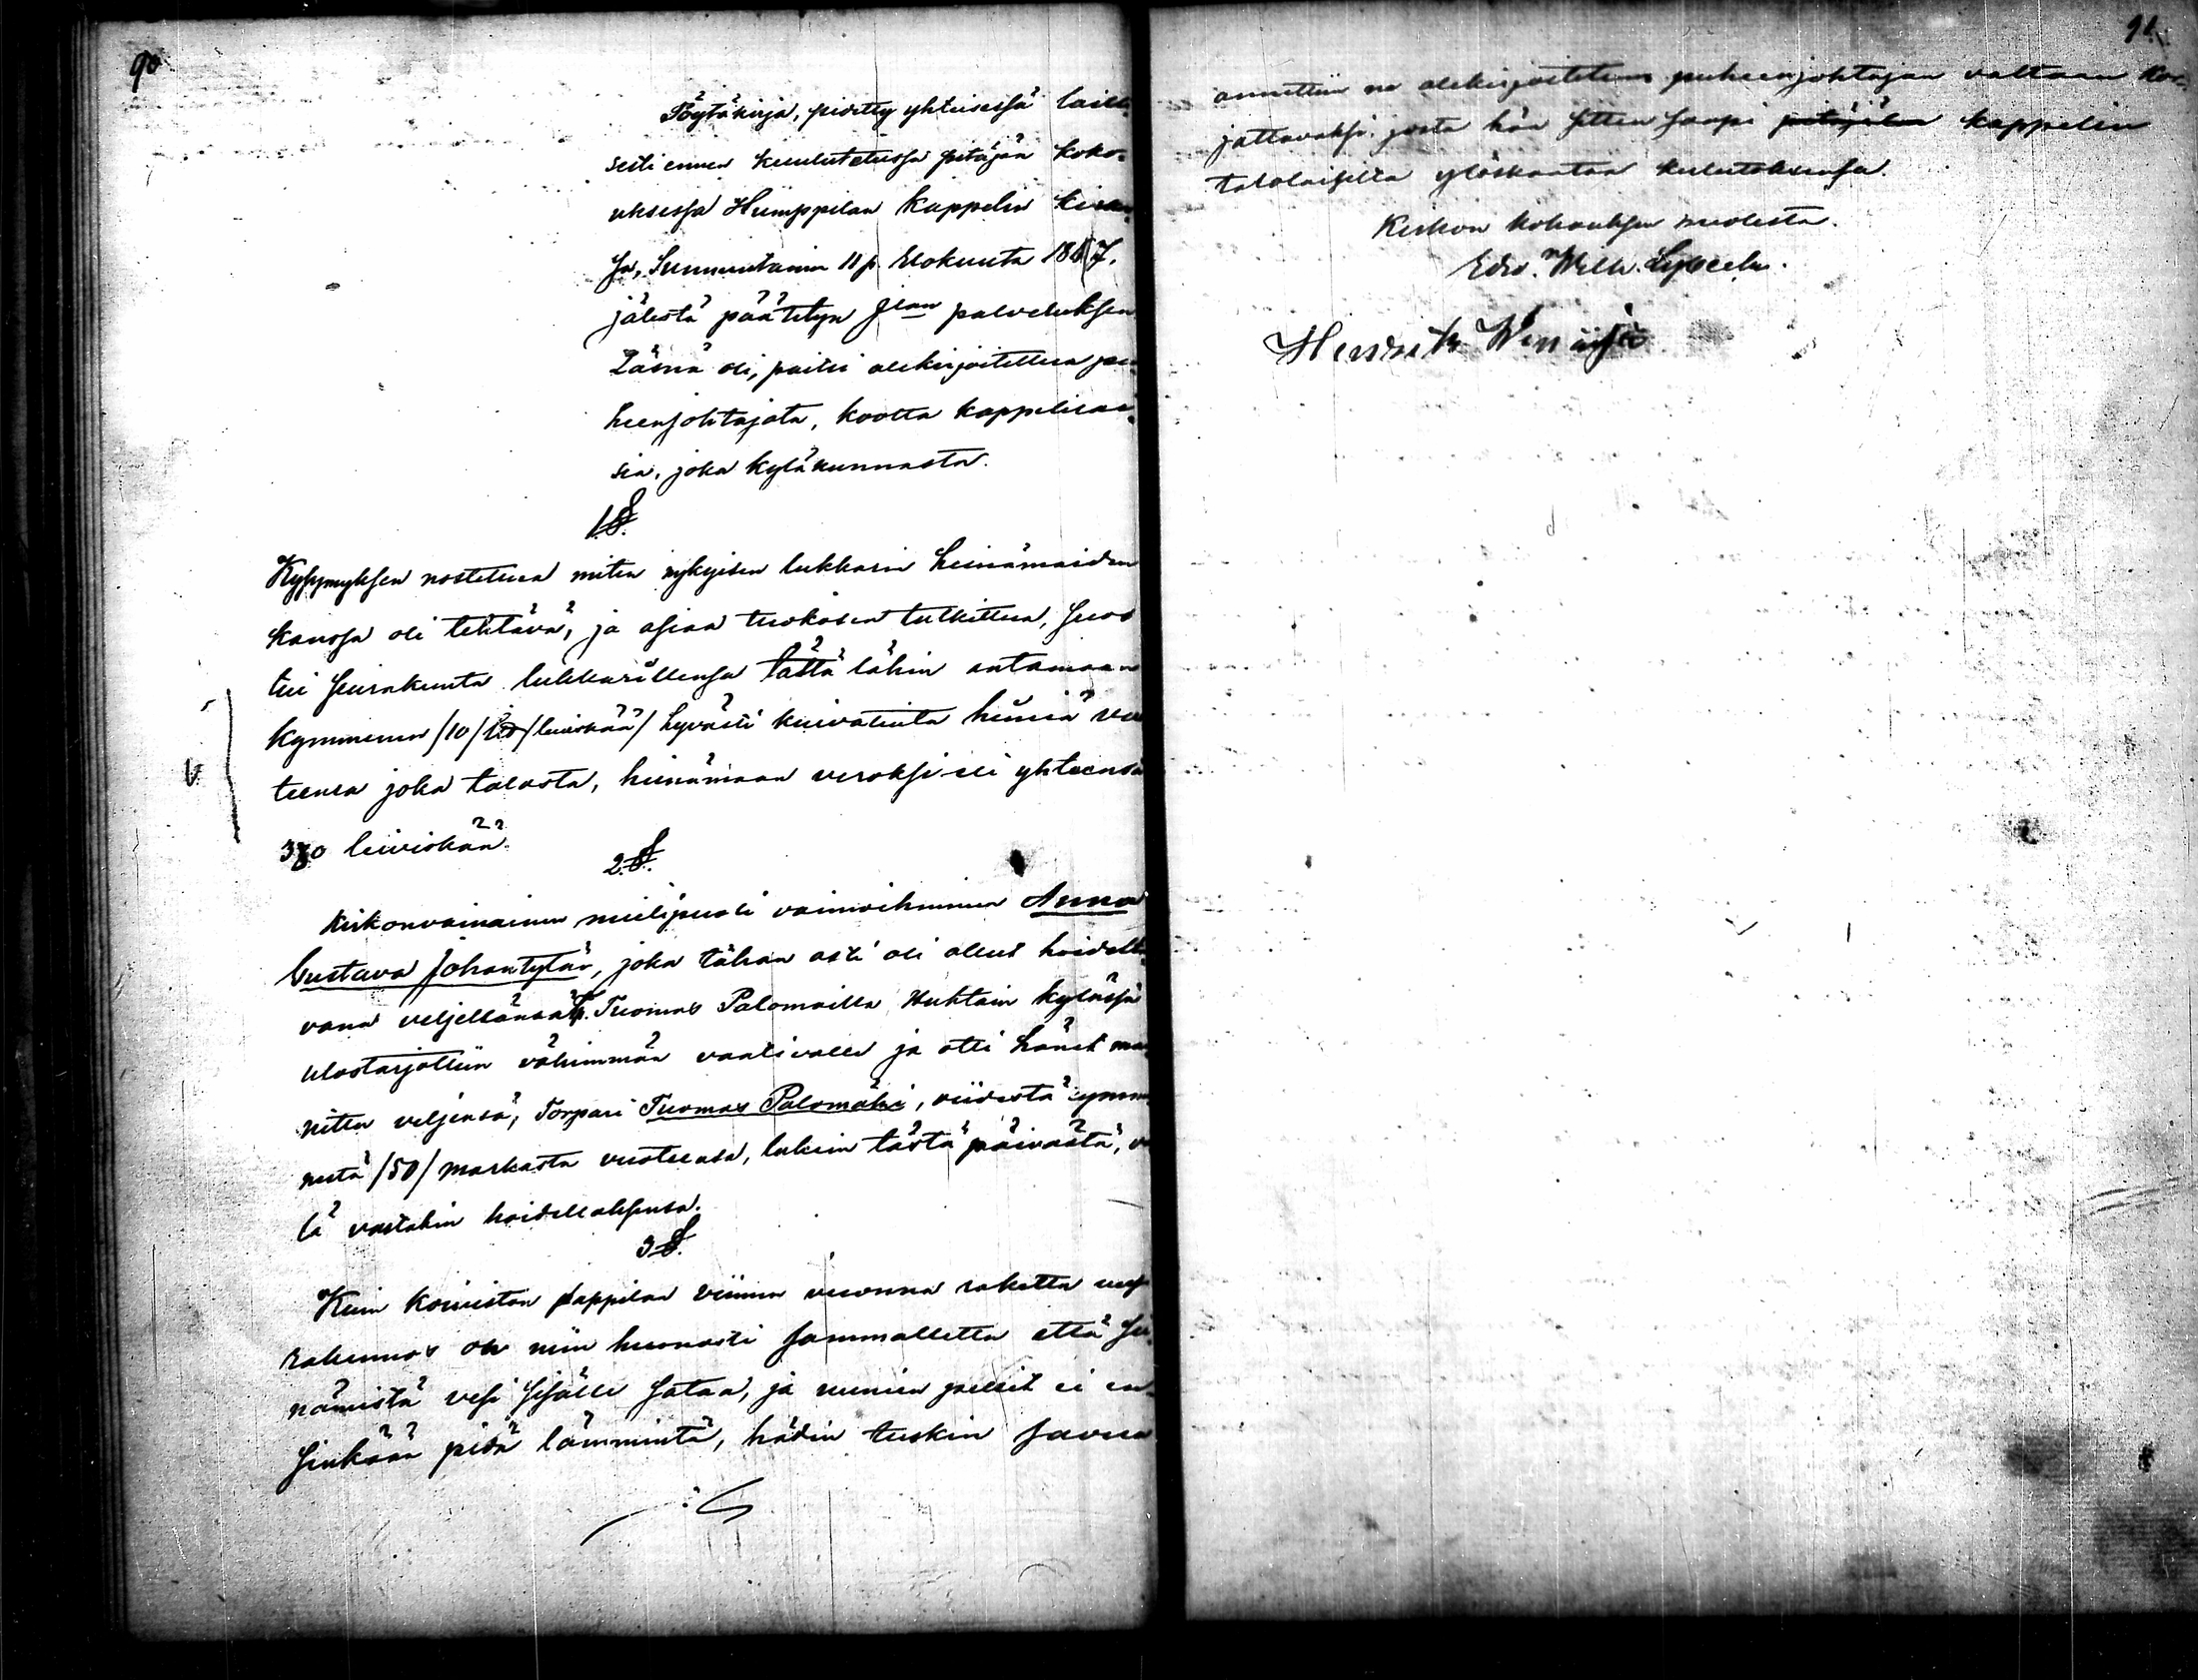 90
Pöytäkirja, pidetty yhteisessä lailli-
sesti ennen kuulutetussa pitäjän koko-
uksessa Humppilan kappelin kirkos-
sa, Sunnuntaina 11 p. Elokuuta 1867.
jälestä päätetyn Jlan palveluksen
Läsnä oli, paitsi alekirjoitettua pu-
heenjohtajata, koolta kappelisai-
sia, joka kyläkunnasta.
1.§.
Kysymyksen nostettua miten nykyisen lukkarin heinämaiden
kanssa oli tehtävä, ja asiaa tutkittua, suos
tui seurakunta lukkarillensa tästä lähin antamaan
kymmenen /10/ L℔ /leiviskää/ hyvästi kuivatuita heiniä vuo
teensa joka talosta, heinämaan veroksi eli yhteensä
370 leiviskää.
2.§.
Kirkonvaivainen mielipuoli vaimoihminen Anna
Gustava Johantytär, joka tähän asti oli ollut hoidetta-
vana veljellänsä T. Tuomas Palomäilla Huhtain kylässä
ulostarjottiin vähimmän vaativalle ja otti hänet mai
nittu veljensä, Torpari Tuomas Palomäki, viidestä kymme
nestä /50/ markasta vuoteensa, lukein tästä päivästä,
tä vastakin hoidellaksensa.
3 §.
Kuin Koiviston pappilan viimme vuonna rakettu uusi
rakennos on niin huonosti sammallettu että sei-
nämistä vesi sisälle sataa, ja uunien pellit ei en-
sinkään pidä lämmintä, hädin tuskin savua
91.
annettiin ne alekirjoitetun puheenjohtajan valtaan kor-
jattavaksi, josta hän sitten saapi pitäjältä kappelin
talolaisilta ylöskantaa kulutuksensa.
Kirkon kokouksen puolesta.
Edv. Wilh. Lyseeln.
Henrik Wen